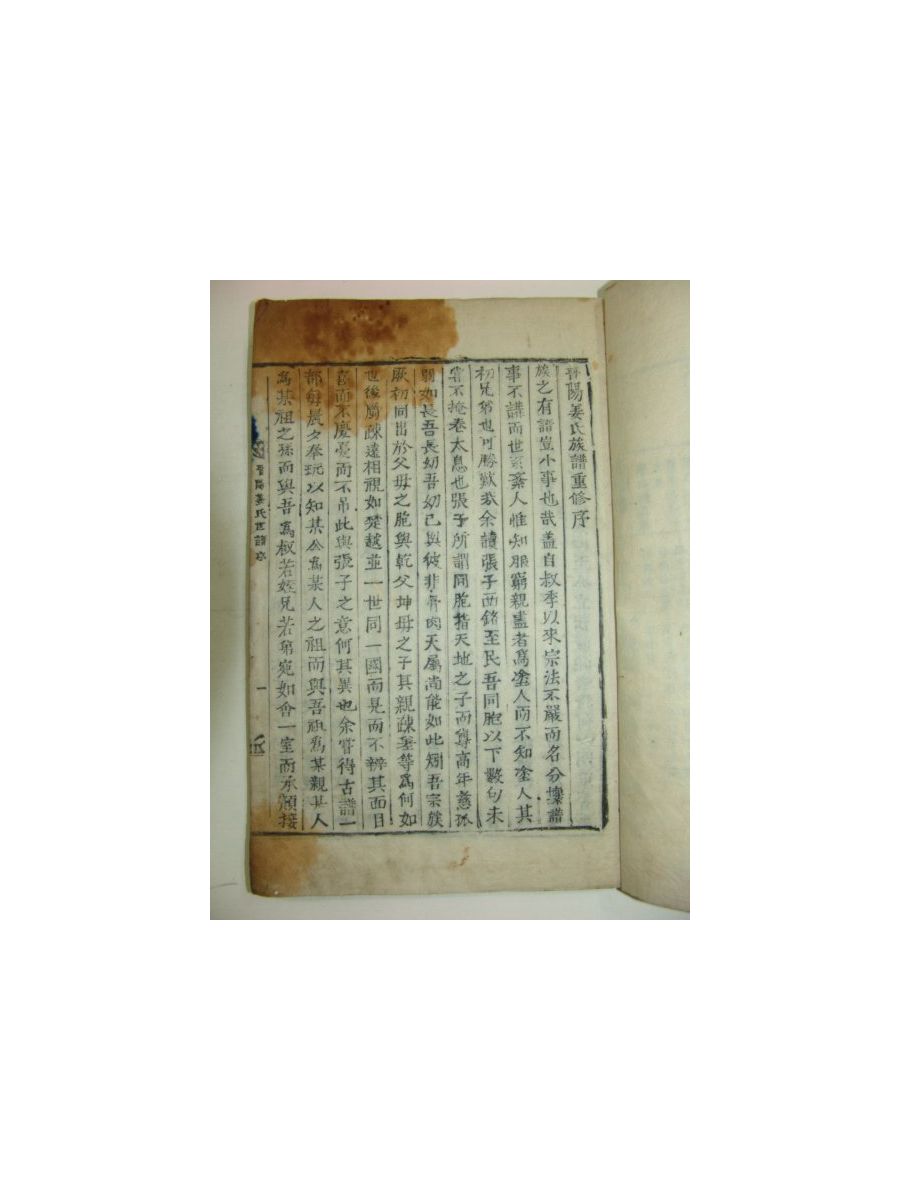 晋陽姜氏族譜重修序
族之有譜豈小事也哉盖自叔季以來宗法不嚴而名分壞譜
事不講而世系紊人惟知服窮親盡者爲塗人而不知塗人其
初兄弟也可勝歎哉余讀張子西銘至民吾同胞以下數句未
甞不掩卷太息也張子所謂同胞指天地之子而尊高年慈孤
弱如長吾長幼吾幼已與彼非骨肉天屬尚能如此矧吾宗族
厥初同出於父母之胞與乾父坤母之子其親疎差等爲何如
也後屬疎遠相視如楚越並一世同一國而見而不辨其面目
喜而不慶憂而不吊此與張子之意何其異也余嘗得古譜一
部每晨夕奉玩以知某公爲某人之祖而與吾祖爲某親某人
爲某祖之孫而與吾爲叔若姪兄若弟宛如會一室而承顔接
晋陽姜氏世譜序
一